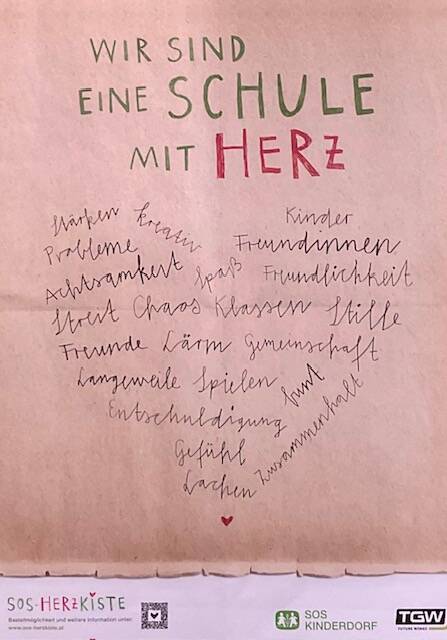 WIR SIND
EINE SCHULE
MIT HERZ
Stärken kreativ Kinder
Probleme Freundinnen
Achtsamkeit Spaß Freundlichkeit
Streit Chaos Klassen Stille
Freunde Lärm Gemeinschaft
Langeweile Spielen bunt
Entschuldigung Zusammenhalt
Gefühl
Lachen
SOS-HERZKISTE
Bestellmöglichkeit und weitere Information unter:
www.sos-herzkiste.at
SOS
KINDERDORF
TGW
FUTURE WINGS